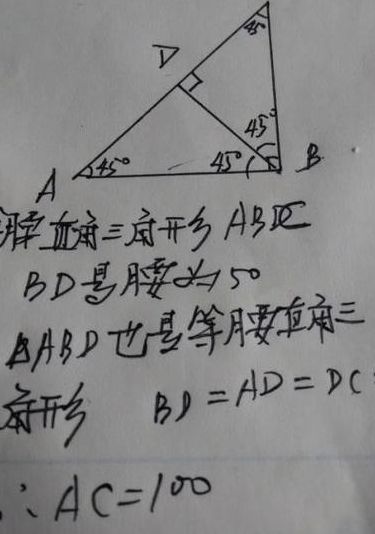 45°
D
45°
45°
45°
B
A
腰直角三角形 ABC
BD是腰 50
△ABD也是等腰直角三
角形 BD=AD=DC
∴AC=100